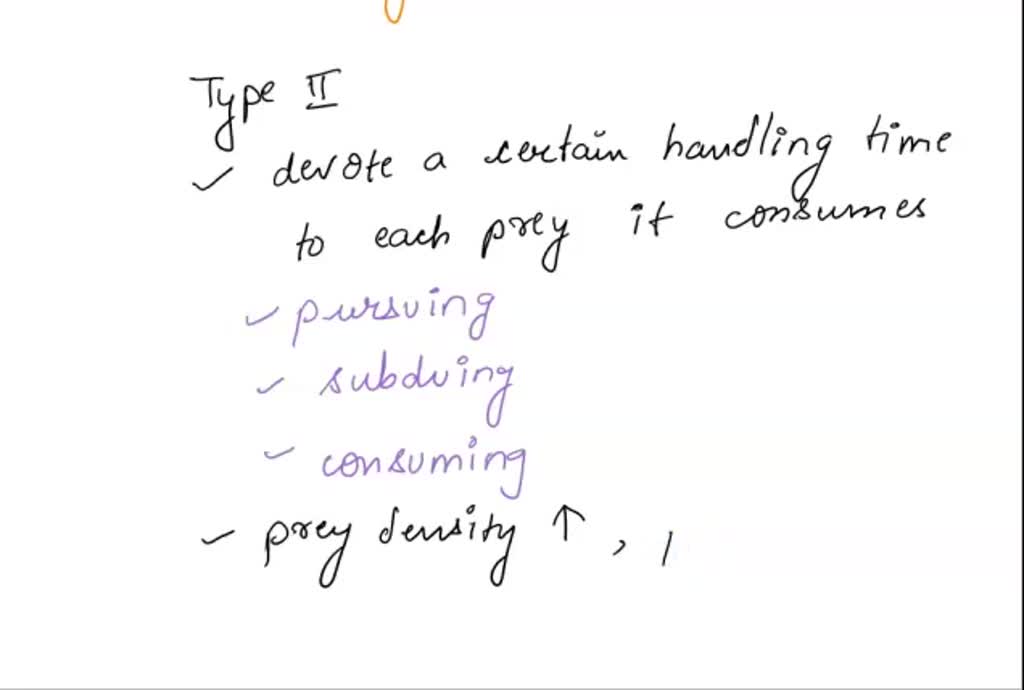 Type II
✓ devote a certain handling time
to each prey it consumes
✓ pursuing
✓ subduing
✓ consuming
✓ prey density ↑ ,